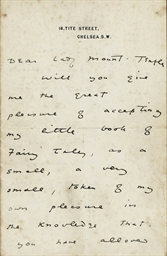 16, TITE STREET,
CHELSEA. S.W.
Dear Lady Mount-Temple
Will you give
me the great
pleasure of accepting
my little book of
Fairy tales, as a
small, a very
small, token of my
own pleasure in
the knowledge that
you have allowed